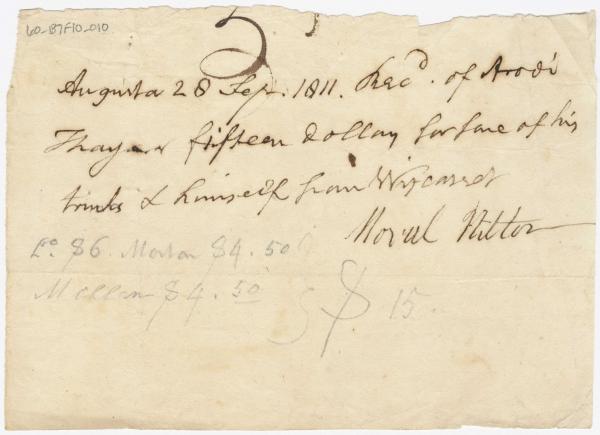 60-B7F10-010
Augusta 28 Sept. 1811. Recd. of Arodi
Thayer fifteen dollars for fare of his
trunks & himself from Wiscasset
Hilton
Lo. $6. Morton $4.50
Mellen $4.50
$15.